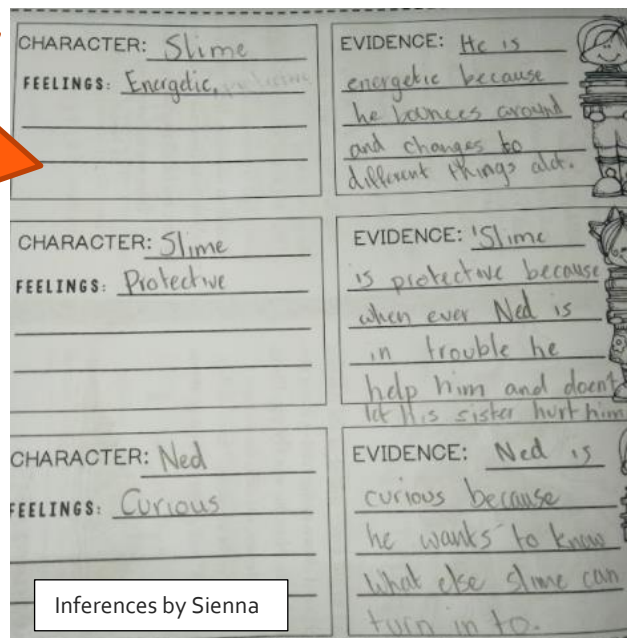 CHARACTER: Slime
FEELINGS: Energetic,
EVIDENCE: He is
energetic because
he bounces around
and changes to
different things alot.
CHARACTER: Slime
FEELINGS: Protective
EVIDENCE: 'Slime
is protective because
when ever Ned is
in trouble he
help him and doent
let His sister hurt him
CHARACTER: Ned
FEELINGS: Curious
EVIDENCE: Ned is
curious because
he wants to know
what else slime can
turn in to.
Inferences by Sienna